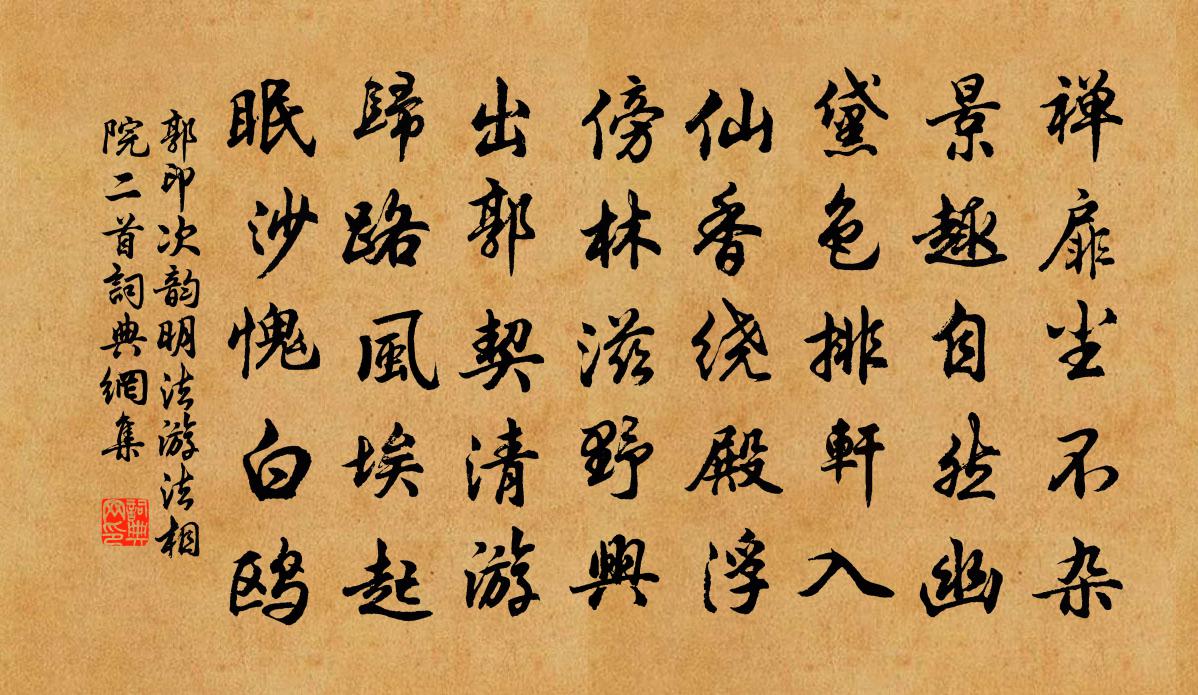 禅扉尘不杂
景趣自然幽
黛色排軒入
仙香绕殿浮
傍林滋野興
出郭契清游
歸路風埃起
眠沙愧白鸥
郭印次韵明法游法相
院二首詞典網集
詞典
网印